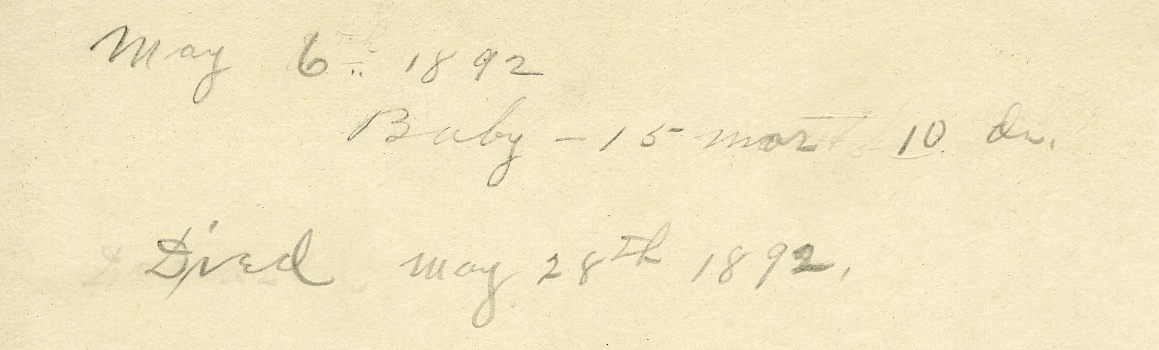 May 6th 1892
Baby - 15 mos 10 da.
Died May 28th 1892.